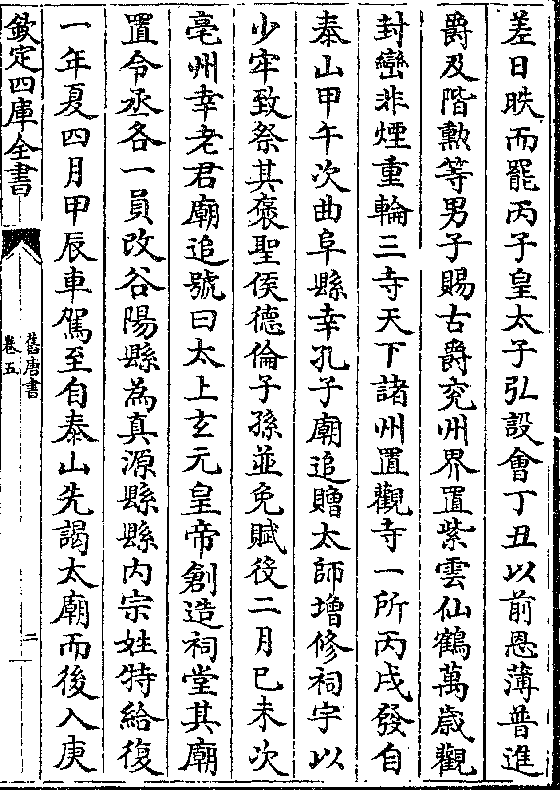 差日昳而罷丙子皇太子弘設會丁丑以前恩薄普進
爵及階勲等男子賜古爵兖州界置紫雲仙鶴萬歲觀
封巒非煙重輪三寺天下諸州置觀寺一所丙戌發自
泰山甲午次曲阜縣幸孔子廟追贈太師增修祠宇以
少牢致祭其褒聖侯德倫子孫並免賦役二月己未次
亳州幸老君廟追號曰太上玄元皇帝創造祠堂其廟
置令丞各一員改谷陽縣為真源縣縣内宗姓特給復
一年夏四月甲辰車駕至自泰山先謁太廟而後入庚
欽定四庫全書
舊唐書
卷五
二